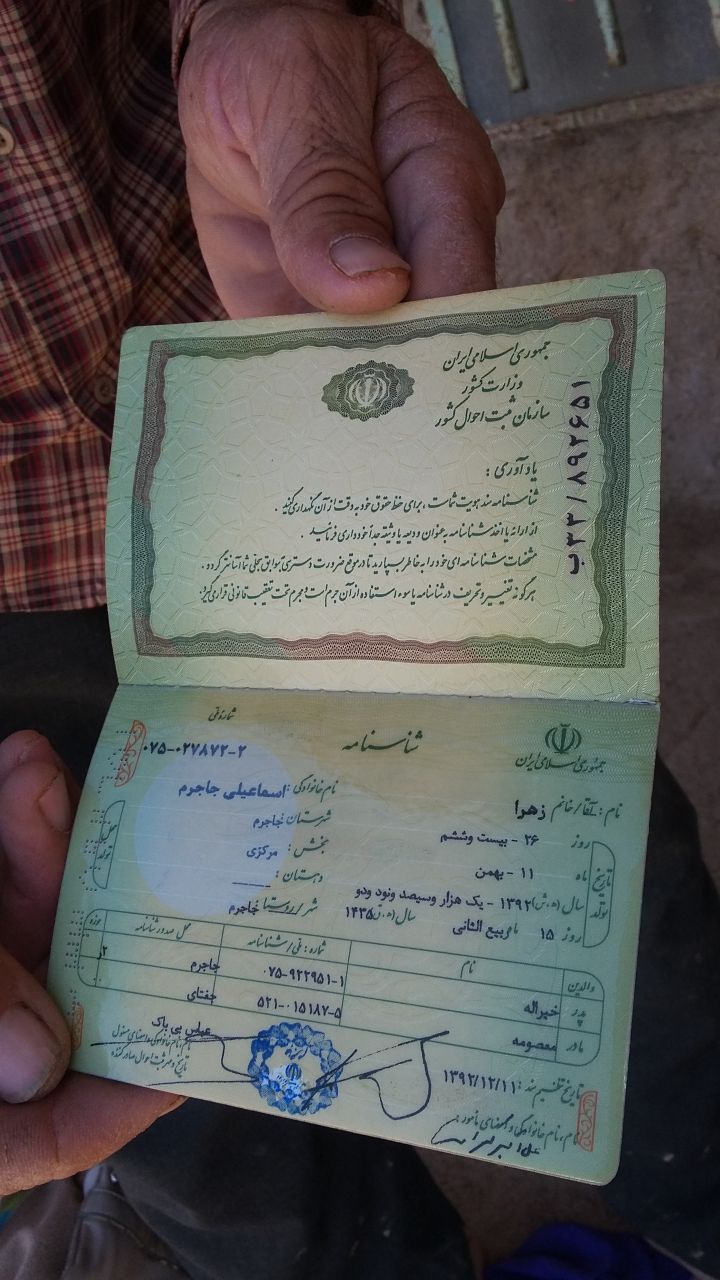 جمهوری اسلامی ایران
وزارت کشور
سازمان ثبت احوال کشور
ب۳۳ / ۸۹۲۶۵۱
یادآوری :
شناسنامه سند هویت شماست ، برای حفظ حقوق خود به دقت از آن نگهداری کنید .
از ارائه یا اخذ شناسنامه به عنوان ودیعه یا وثیقه جداً خودداری فرمائید .
مشخصات شناسنامه ای خود را به خاطر بسپارید تا در موقع ضرورت دسترسی به سوابق سجلی شما آسانتر گردد .
هرگونه تغییر و تحریف در شناسنامه یا سوء استفاده از آن جرم است و مجرم تحت تعقیب قانونی قرار می گیرد .
جمهوری اسلامی ایران
شناسنامه
شماره ملی
۰۷۵-۰۲۷۸۷۲-۲
نام : آقا/خانم زهرا
نام خانوادگی : اسماعیلی جاجرم
تاریخ تولد
روز ۲۶ - بیست وششم
ماه ۱۱ - بهمن
سال (ه.ش) ۱۳۹۲ - یک هزار وسیصد ونود ودو
روز ۱۵ ماه ربیع الثانی سال (ه.ق) ۱۴۳۵
محل تولد
شهرستان : جاجرم
بخش : مرکزی
دهستان : ———
شهر/روستا : جاجرم
والدین نام شماره : ملی/شناسنامه محل صدور شناسنامه حوزه
پدر خیراله ۰۷۵-۹۲۲۹۵۱-۱ جاجرم
مادر معصومه ۵۲۱-۰۱۵۱۸۷-۵ جغتای
تاریخ تنظیم سند : ۱۳۹۲/۱۲/۱۱
نام ، نام خانوادگی و امضای مامور :
عباس بی باک
نام ، نام خانوادگی و امضای مسئول
تاریخ و مهر ثبت احوال صادر کننده